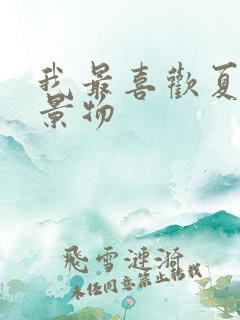 我最喜歡夏
景物
飛雪漣漪
未经同意禁止转载